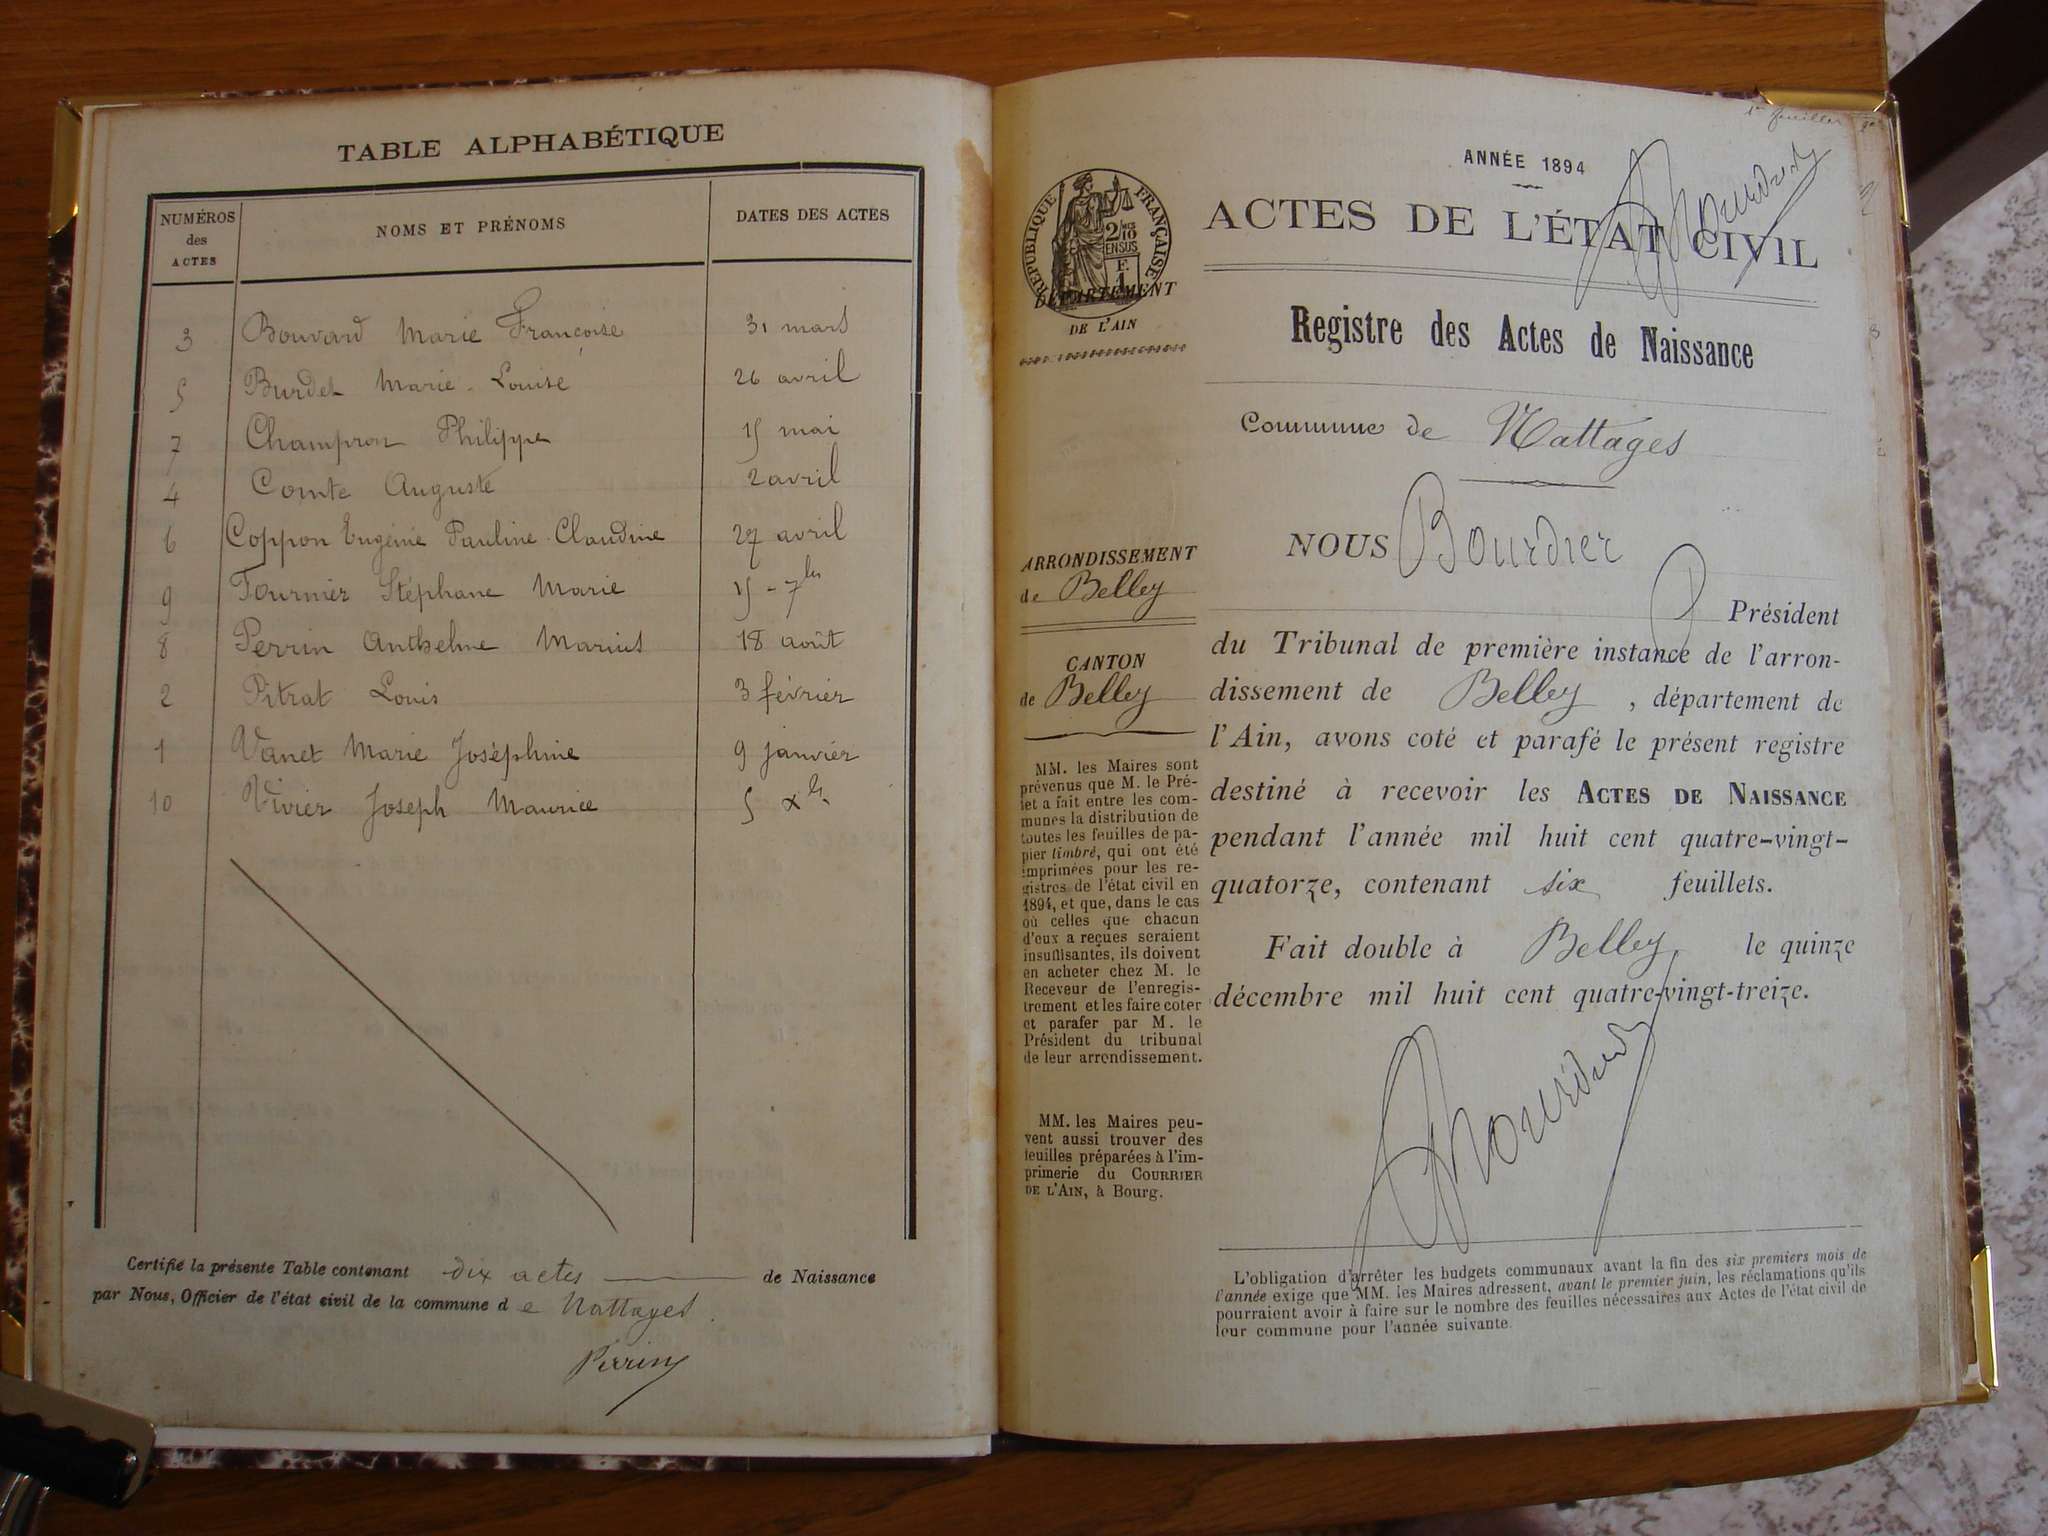 TABLE ALPHABÉTIQUE
NUMÉROS des ACTES NOMS ET PRÉNOMS DATES DES ACTES
3 Bouvard Marie Françoise 31 mars
5 Burdet Marie-Louise 26 avril
7 Champion Philippe 15 mai
4 Comte Auguste 2 avril
6 Coppon Eugénie Pauline Claudine 27 avril
9 Fournier Stéphane Marie 15 - 7bre
8 Perrin Anthelme Marius 18 août
2 Pitrat Louis 3 février
1 Vanet Marie Joséphine 9 janvier
10 Vivier Joseph Maurice 5 Xbre
Certifié la présente Table contenant dix actes de Naissance
par Nous, Officier de l'état civil de la commune de Nattages.
Perrin
ANNÉE 1894
RÉPUBLIQUE FRANÇAISE
ACTES DE L'ÉTAT CIVIL
DÉPARTEMENT
DE L'AIN
Registre des Actes de Naissance
Commune de Nattages
NOUS Bourdier
ARRONDISSEMENT
de Belley
CANTON
de Belley
Président
du Tribunal de première instance de l'arron-
dissement de Belley, département de
l'Ain, avons coté et parafé le présent registre
destiné à recevoir les ACTES DE NAISSANCE
pendant l'année mil huit cent quatre-vingt-
quatorze, contenant six feuillets.
Fait double à Belley, le quinze
décembre mil huit cent quatre-vingt-treize.
MM. les Maires sont
prévenus que M. le Pré-
fet a fait entre les com-
munes la distribution de
toutes les feuilles de pa-
pier timbré, qui ont été
imprimées pour les re-
gistres de l'état civil en
1894, et que, dans le cas
où celles que chacun
d'eux a reçues seraient
insuffisantes, ils doivent
en acheter chez M. le
Receveur de l'enregis-
trement et les faire coter
et parafer par M. le
Président du tribunal
de leur arrondissement.
MM. les Maires peu-
vent aussi trouver des
feuilles préparées à l'im-
primerie du COURRIER
DE L'AIN, à Bourg.
L'obligation d'arrêter les budgets communaux avant la fin des six premiers mois de
l'année exige que MM. les Maires adressent, avant le premier juin, les réclamations qu'ils
pourraient avoir à faire sur le nombre des feuilles nécessaires aux Actes de l'état civil de
leur commune pour l'année suivante.